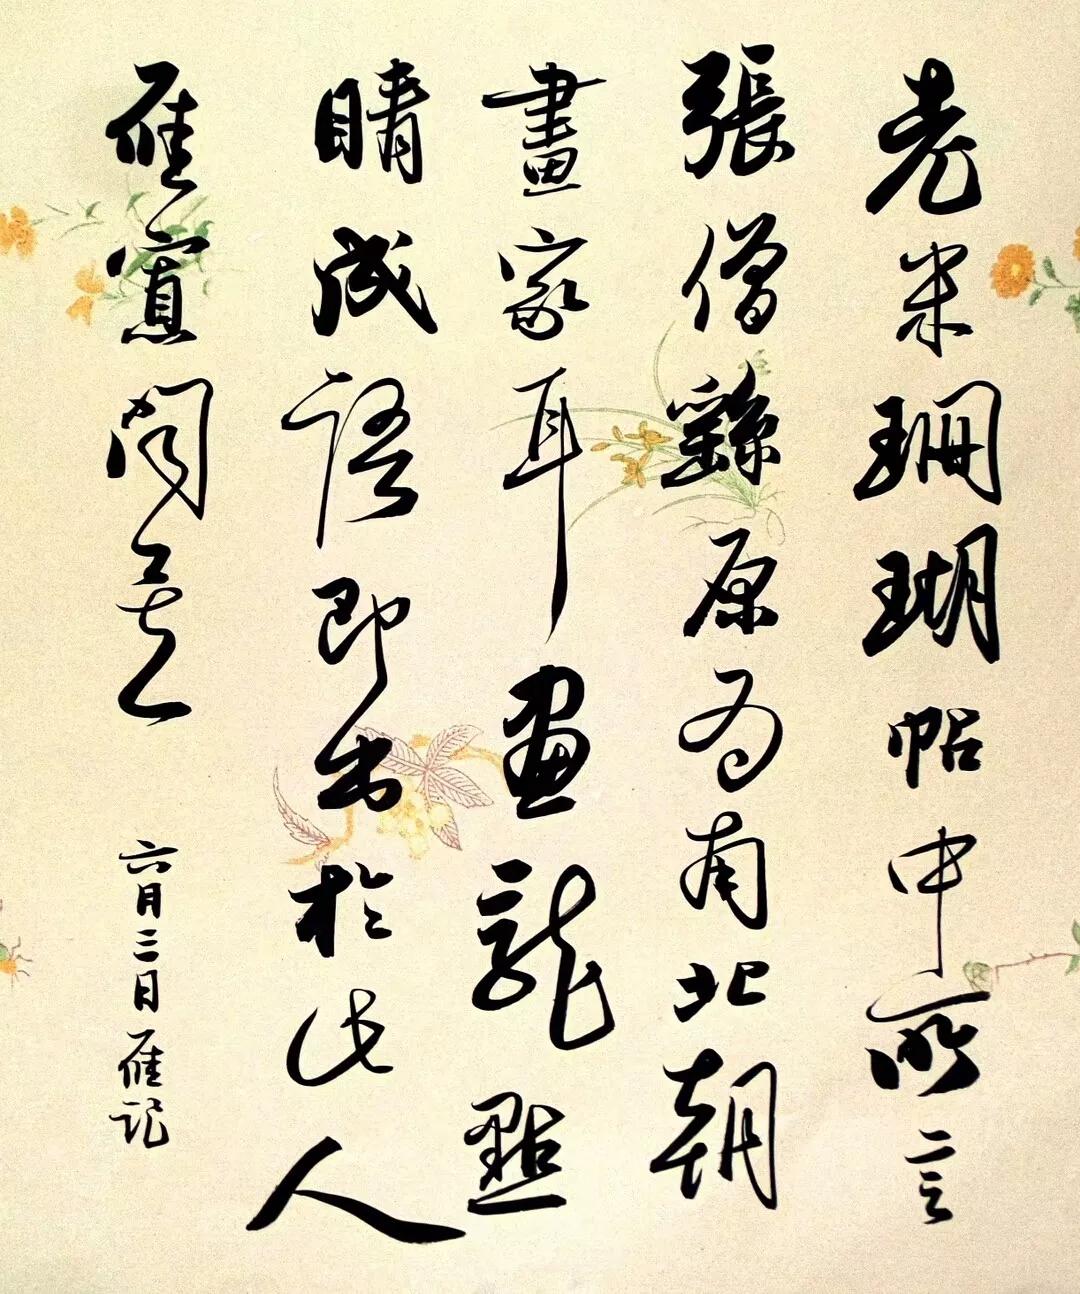 老米珊瑚帖中所言
張僧繇原為南北朝
畫家耳畫龍點
睛成語即出於此人
雁
六月三日雁記